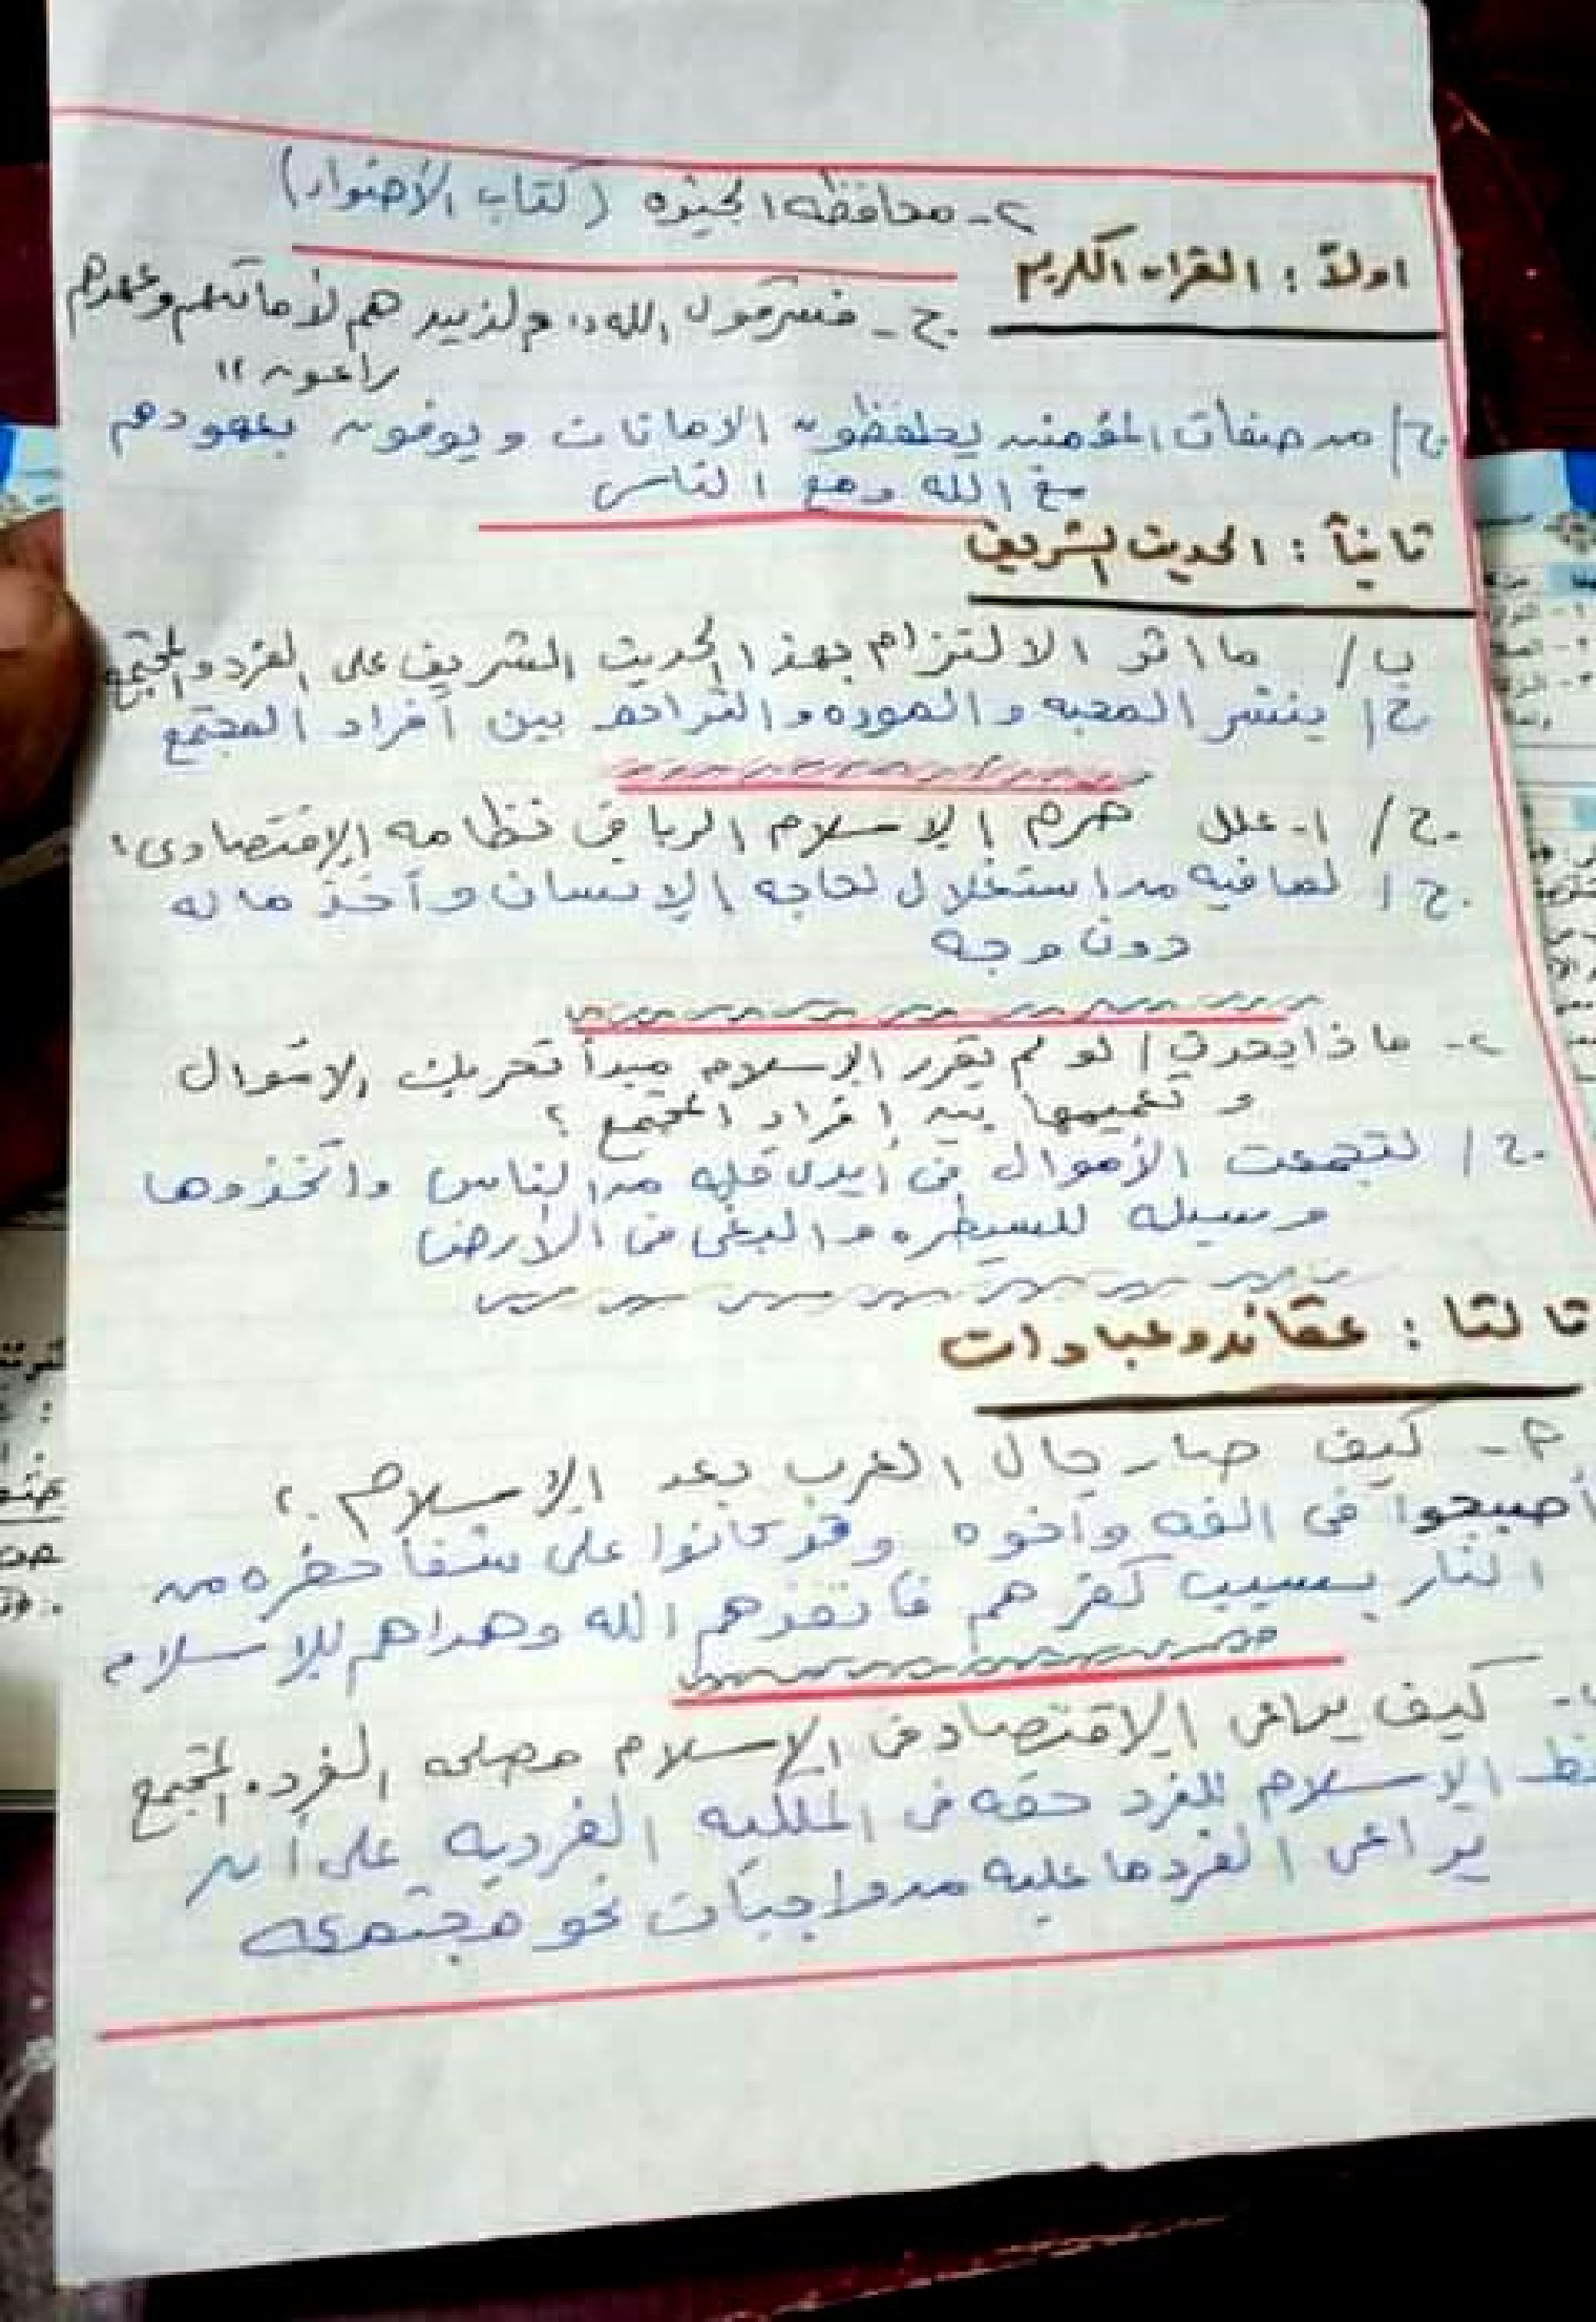 ٢- محافظه الجيزه (كتاب الأضواء)
اولاً : القراءن الكريم
ج- فسر قول الله " والذين هم لأماناتهم وعهدهم
راعون "
ج/ من صفات المؤمنين يحافظون الامانات ويوفون بعهودهم
مع الله ومع الناس
ثانياً : الحديث الشريف
ب/ ما اثر الالتزام بهذا الحديث الشريف على الفرد والمجتمع
ج/ ينشر المحبه والموده والتراحم بين أفراد المجتمع
ج/ ١- علل حرم الإسلام الربا في نظامه الإقتصادى؟
ج/ لما فيه من استغلال لحاجه الإنسان وأخذ ماله
دون وجه
٢- ماذا يحدث / لو لم يقرر الإسلام مبدأ تحريك الاموال
و تعميمها بين إفراد المجتمع ؟
ج/ لتجمعت الأموال فى ايدى قله من الناس واتخذوها
وسيله للسيطره والبغى فى الأرض
ثالثا : عقائد وعبادات
٣- كيف صار حال العرب بعد الإسلام ؟
أصبحوا فى الفه وأخوه وقد كانوا على شفا حفره من
النار بسبب كفرهم فانقذهم الله وهداهم للإسلام
كيف يراعى الإقتصاد فى الإسلام مصلحه الفرد والمجتمع
الإسلام للفرد حقه فى الملكيه الفرديه على أن
يراعى الفرد ما عليه من واجبات نحو مجتمعه